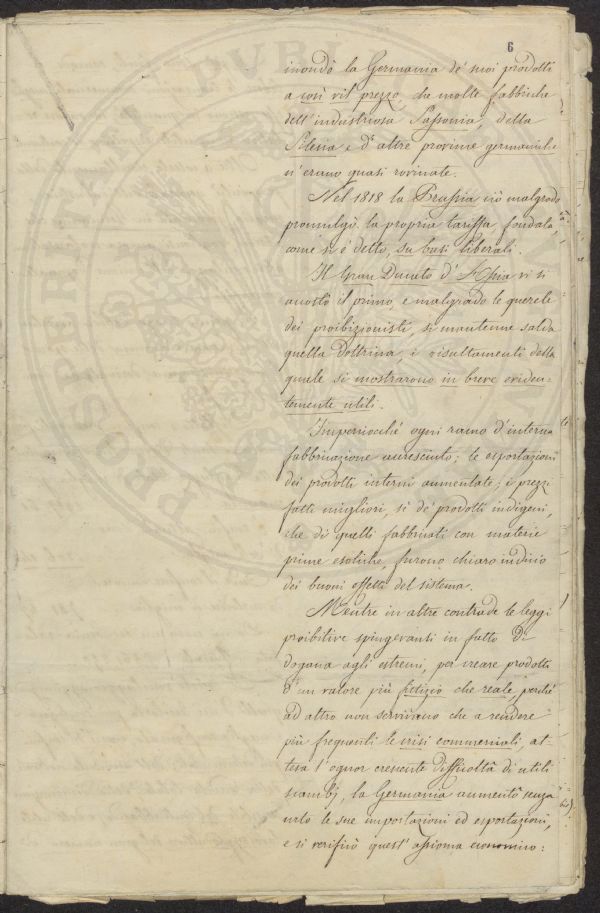 6
inondò la Germania de' suoi prodotti
a così vil prezzo, che molte fabbriche
dell'industriosa Sassonia, della
Silesia e d'altre provincie germaniche
n'erano quasi rovinate.
Nel 1818 la Prussia ciò malgrado
promulgò la propria tariffa fondata,
come si è detto, su basi liberali.
Il Gran Ducato d'Assia vi si
accostò il primo, e malgrado le querele
dei proibizionisti, si mantenne salda
quella Dottrina, i risultamenti della
quale si mostrarono in breve eviden-
temente utili.
Imperciocché ogni ramo d'interna
fabbricazione accresciuto; le esportazioni
dei prodotti interni aumentate; i prezzi
fatti migliori, sì de' prodotti indigeni,
che di quelli fabbricati con materie
prime esotiche, furono chiaro indizio
dei buoni effetti del sistema.
Mentre in altre contrade le leggi
proibitive spingevansi in fatto di
dogana agli estremi, per creare prodotti
d'un valore più fittizio che reale, perché
ad altro non servivano che a rendere
più frequenti le crisi commerciali, at-
tesa l'ognor crescente difficoltà di utili
scambj, la Germania aumentò senza
urto le sue importazioni ed esportazioni,
e si verificò quest'assioma economico:
PROSPERITATI PVBL